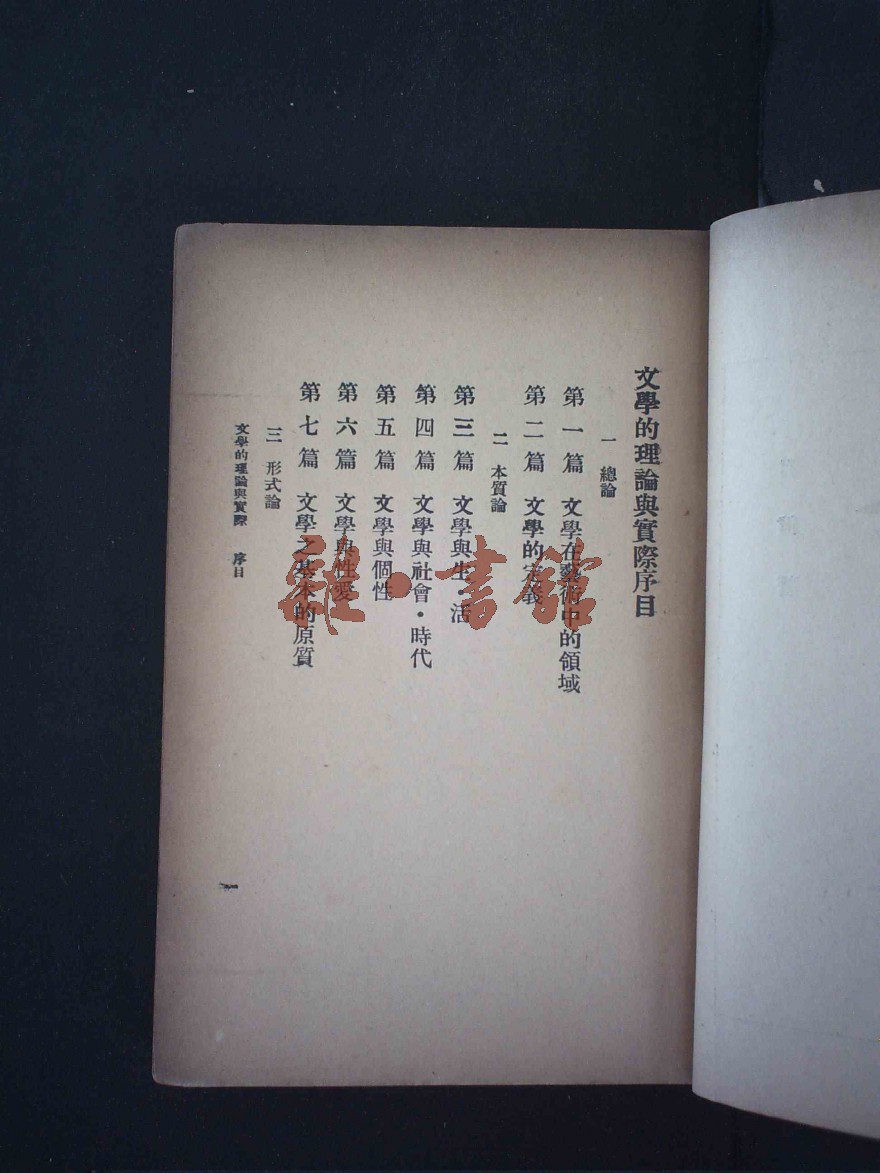 文學的理論與實際序目
一 總論
第一篇 文學在藝術中的領域
第二篇 文學的定義
二 本質論
第三篇 文學與生活
第四篇 文學與社會・時代
第五篇 文學與個性
第六篇 文學與性愛
第七篇 文學之基本的原質
三 形式論
文學的理論與實際 序目
一
雜・書館